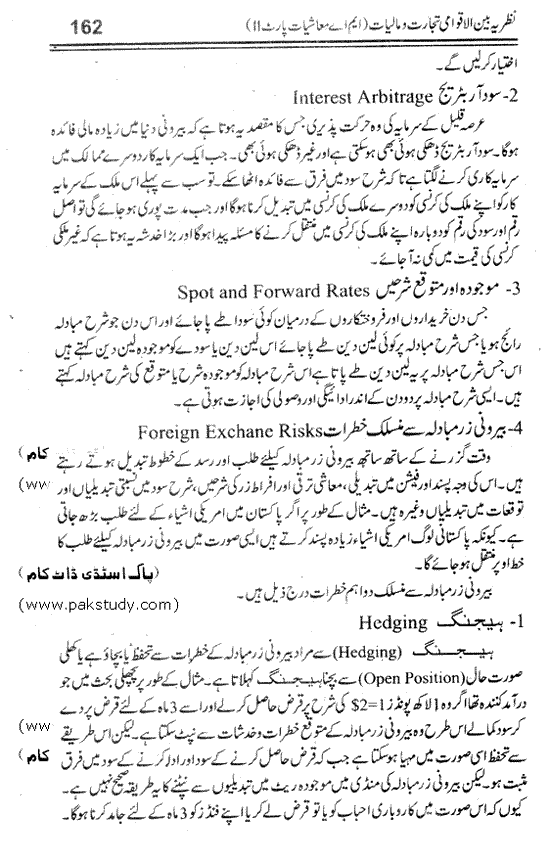 نظریہ بین الاقوامی تجارت و مالیات (ایم اے معاشیات پارٹ II) 162
اختیار کر لیں گے۔
2- سود آربٹریج Interest Arbitrage
عرصہ قلیل کے سرمایہ کی وہ حرکت پذیری جس کا مقصد یہ ہوتا ہے کہ بیرونی دنیا میں زیادہ مالی فائدہ
ہوگا۔ سود آربٹریج ڈھکی ہوئی بھی ہوسکتی ہے اور غیر ڈھکی ہوئی بھی۔ جب ایک سرمایہ کار دوسرے ممالک میں
سرمایہ کاری کرنے لگتا ہے تاکہ شرح سود میں فرق سے فائدہ اٹھا سکے۔ تو سب سے پہلے اس ملک کے سرمایہ
کار کو اپنے ملک کی کرنسی کو دوسرے ملک کی کرنسی میں تبدیل کرنا ہوگا اور جب مدت پوری ہو جائے گی تو اصل
رقم اور سود کی رقم کو دوبارہ اپنے ملک کی کرنسی میں منتقل کرنے کا مسئلہ پیدا ہوگا اور بڑا خدشہ یہ ہوتا ہے کہ غیر ملکی
کرنسی کی قیمت میں کمی نہ آ جائے۔
3- موجودہ اور متوقع شرحیں Spot and Forward Rates
جس دن خریداروں اور فروختکاروں کے درمیان کوئی سودا طے پا جائے اور اس دن جو شرح مبادلہ
رائج ہو یا جس شرح مبادلہ پر کوئی لین دین طے پا جائے اس لین دین یا سودے کو موجودہ لین دین کہتے ہیں
اس جس شرح مبادلہ پر یہ لین دین طے پاتا ہے اس شرح مبادلہ کو موجودہ شرح یا متوقع کی شرح مبادلہ کہتے
ہیں۔ ایسی شرح مبادلہ پر دو دن کے اندر ادائیگی اور وصولی کی اجازت ہوتی ہے۔
4- بیرونی زرمبادلہ سے منسلک خطرات Foreign Exchane Risks
وقت گزرنے کے ساتھ ساتھ بیرونی زرمبادلہ کیلئے طلب اور رسد کے خطوط تبدیل ہوتے رہتے کام )
ہیں۔ اس کی وجہ پسند اور فیشن میں تبدیلی، معاشی ترقی اور افراط زر کی شرحیں، شرح سود میں نسبتی تبدیلیاں اور (ww
توقعات میں تبدیلیاں وغیرہ ہیں۔ مثال کے طور پر اگر پاکستان میں امریکی اشیاء کے لئے طلب بڑھ جاتی
ہے۔ کیونکہ پاکستانی لوگ امریکی اشیاء زیادہ پسند کرتے ہیں ایسی صورت میں بیرونی زرمبادلہ کیلئے طلب کا
خط اوپر منتقل ہو جائے گا۔ (پاک اسٹڈی ڈاٹ کام)
بیرونی زرمبادلہ سے منسلک دو اہم خطرات درج ذیل ہیں۔ (www.pakstudy.com)
1- ہیجنگ Hedging
ہیجنگ (Hedging) سے مراد بیرونی زرمبادلہ کے خطرات سے تحفظ یا بچاؤ ہے یا کھلی
صورت حال (Open Position) سے بچنا ہیجنگ کہلاتا ہے۔ مثال کے طور پر پچھلی بحث میں جو
درآمد کنندہ تھا اگر وہ 1 لاکھ پونڈز 1=2$ کی شرح پر قرض حاصل کرلے اور اسے 3 ماہ کے لئے قرض پر دے
کر سود کمالے اس طرح وہ بیرونی زرمبادلہ کے متوقع خطرات و خدشات سے نپٹ سکتا ہے۔ لیکن اس طریقے (ww
سے تحفظ اسی صورت میں مہیا ہوسکتا ہے جب کہ قرض حاصل کرنے کے سود اور ادا کرنے کے سود میں فرق کام )
مثبت ہو۔ لیکن بیرونی زرمبادلہ کی منڈی میں موجودہ ریٹ میں تبدیلیوں سے نپٹنے کا یہ طریقہ صحیح نہیں ہے۔
کیوں کہ اس صورت میں کاروباری احباب کو یا تو قرض لے کر یا اپنے فنڈز کو 3 ماہ کے لئے جامد کرنا ہوگا۔